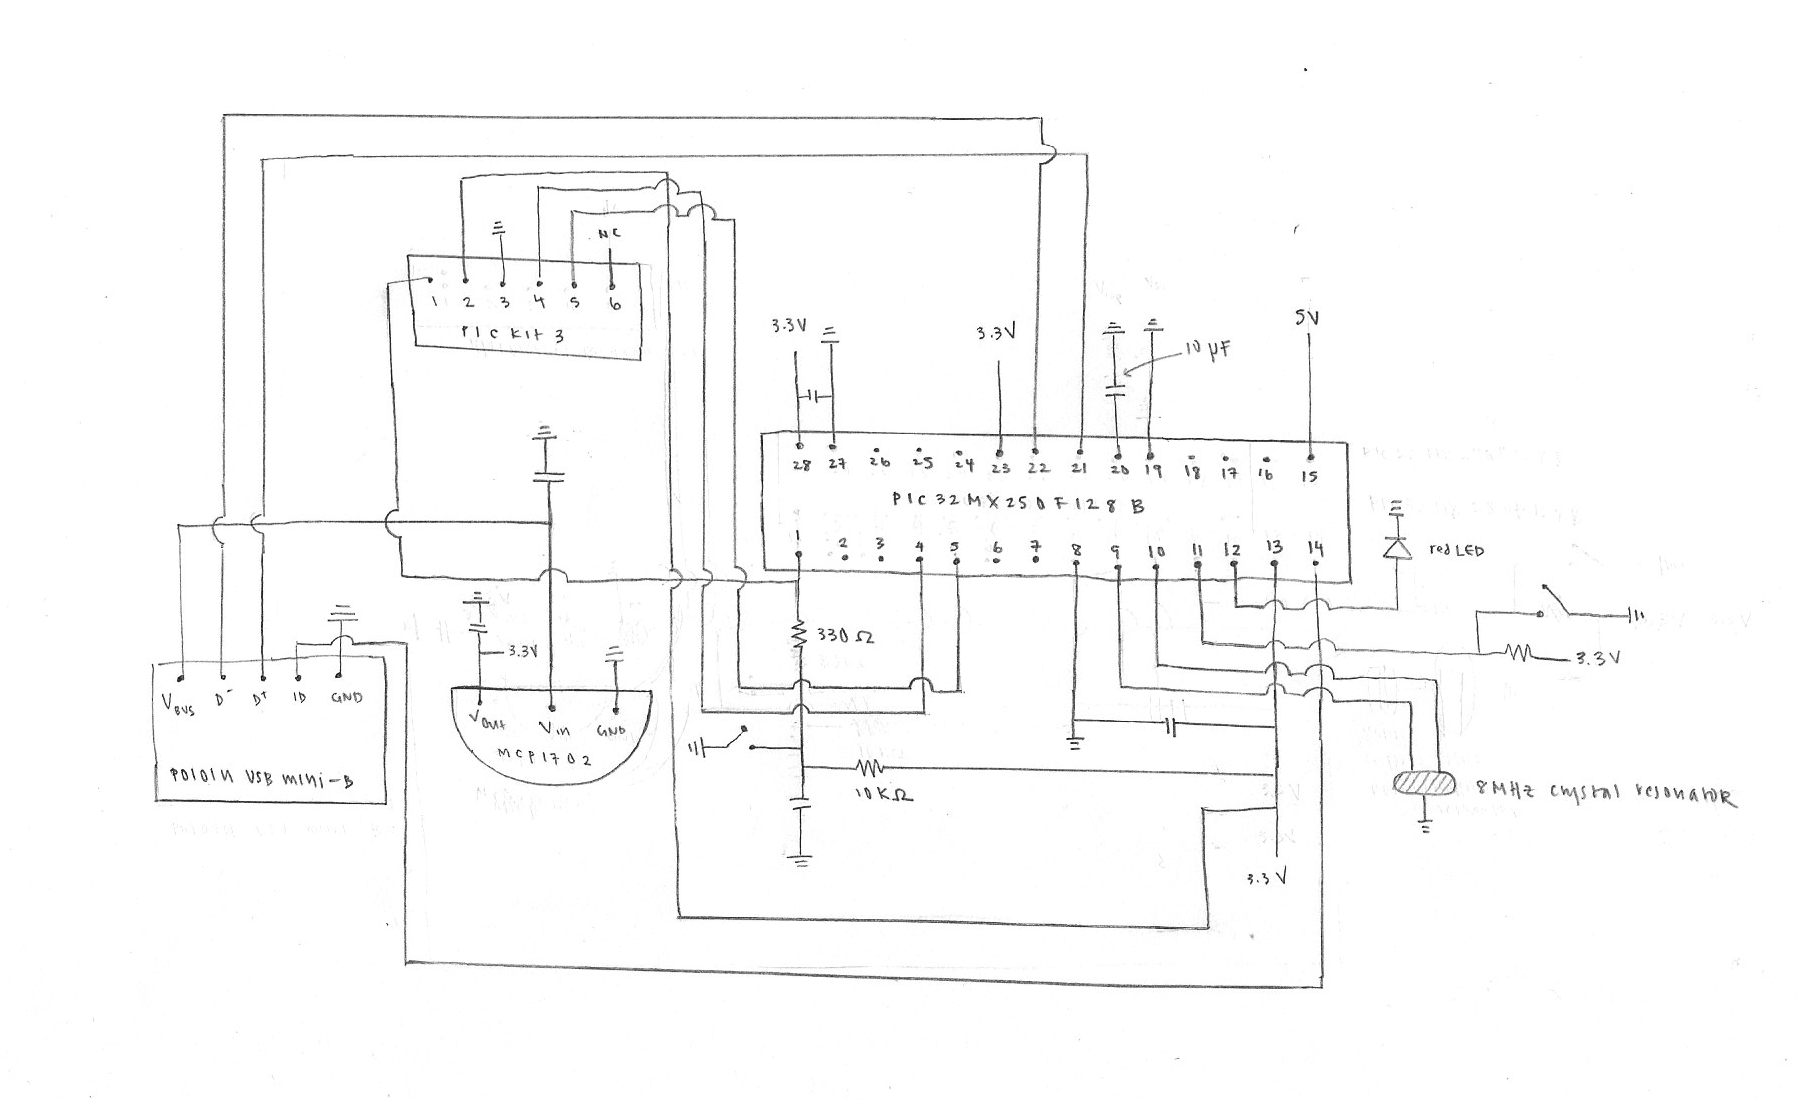 NC
1 2 3 4 5 6
PIC Kit 3
3.3V
3.3V
10 µF
5V
28 27 26 25 24 23 22 21 20 19 18 17 16 15
PIC32MX250F128B
1 2 3 4 5 6 7 8 9 10 11 12 13 14
red LED
330 Ω
3.3V
3.3V
VBUS D- D+ ID GND
Pololu USB mini-B
Vout Vin GND
MCP1702
10KΩ
8MHz crystal resonator
3.3V